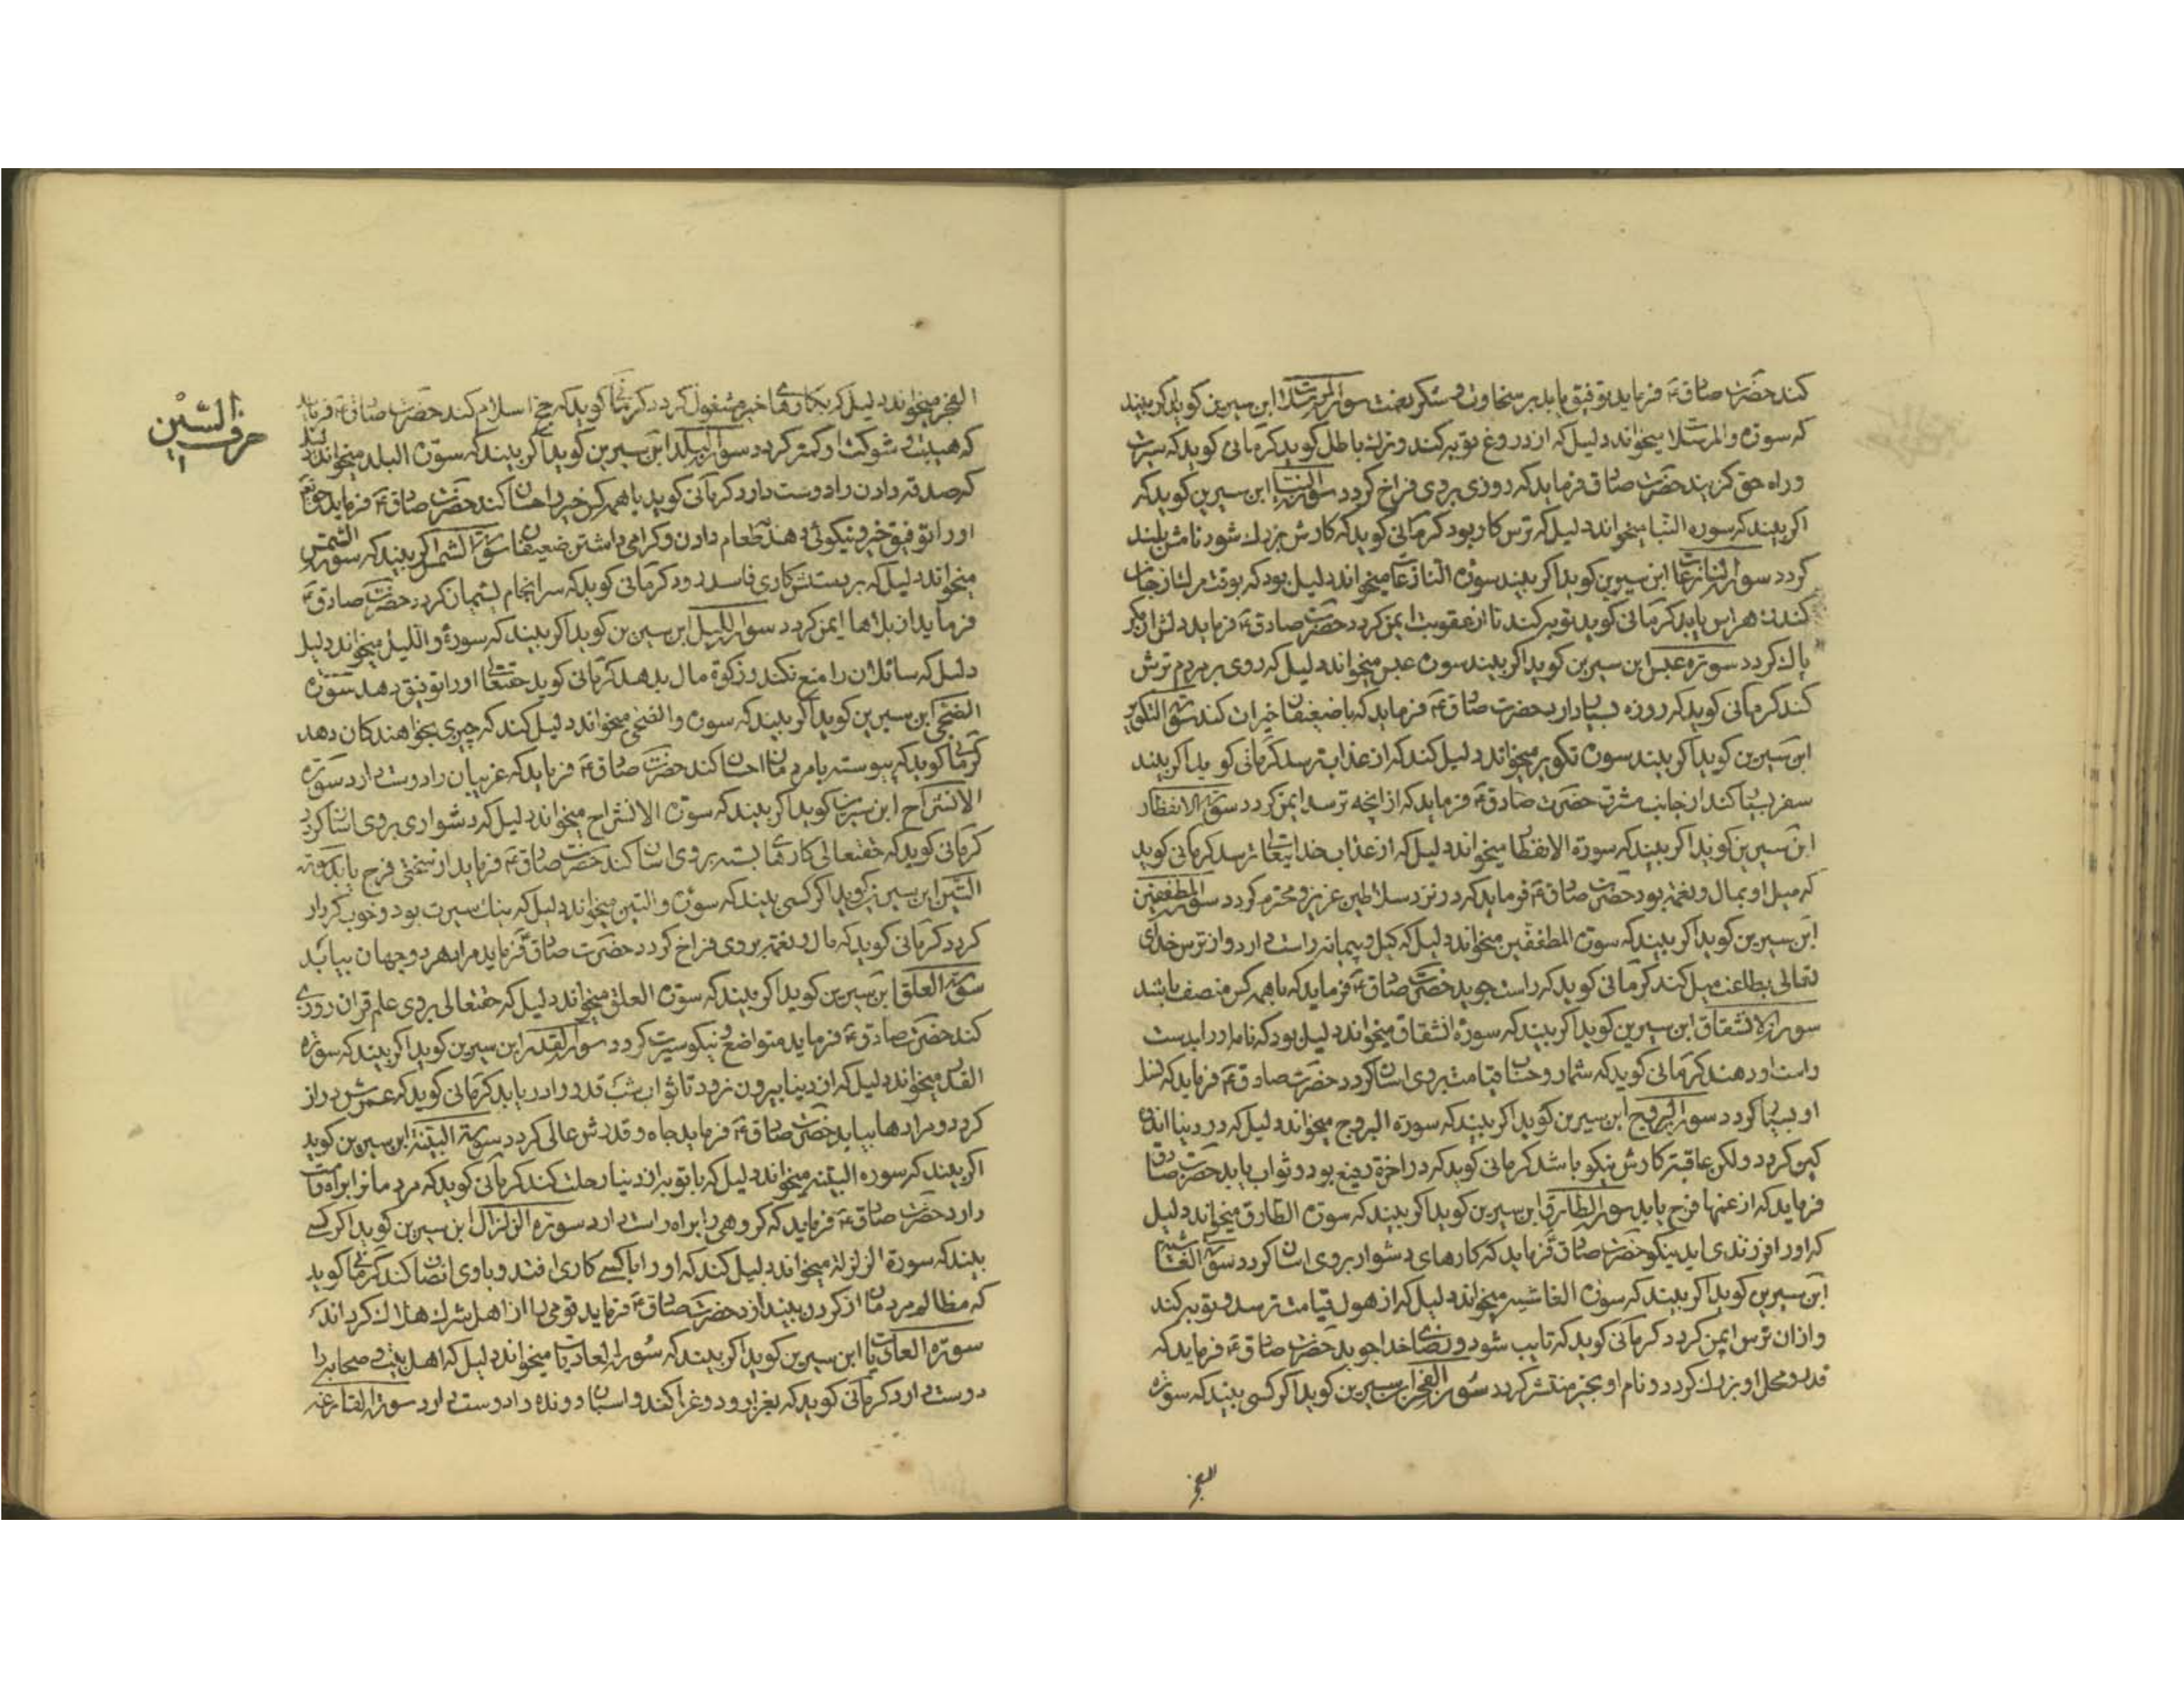 کند حضرت صادق ع فرماید توفیق یابد بر سخاوت و شکر نعمت سورة المرسلات ابن سیرین کوید اکر بیند
که سورة والمرسلات میخواند دلیل که از دروغ توبه کند و نه باطل کوید کرمانی کوید که سیرت
و راه حق کزیند حضرت صادق فرماید که روزی بر وی فراخ کردد سورة النبا ابن سیرین کوید که
اکر بیند که سوره النبا میخواند دلیل که ترس کار بود کرمانی کوید که کارش بزرك شود نامش بلند
کردد سورة النازعات ابن سیرین کوید اکر بیند سورة النازعات میخواند دلیل بود که بوقت مرك از جان
کندن هراس یابد کرمانی کوید توبه کند تا از عقوبت ایمن کردد حضرت صادق ع فرماید دلش از مکر
پاك کردد سورة عبس ابن سیرین کوید اکر بیند سورة عبس میخواند دلیل که روی بر مردم ترش
کند کرمانی کوید که روزه بسیار دارد حضرت صادق ع فرماید که با ضعیفان خیرات کند سورة التکویر
ابن سیرین کوید اکر بیند سورة تکویر میخواند دلیل کند که از عذاب ترسد کرمانی کوید اکر بیند
سفر بسیار کند از جانب مشرق حضرت صادق ع فرماید که از انچه ترسد ایمن کردد سورة الانفطار
ابن سیرین کوید اکر بیند که سورة الانفطار میخواند دلیل که از عذاب خدایتعالی ترسد کرمانی کوید
که میل او بمال و نعمت بود حضرت صادق ع فرماید که در نزد سلاطین عزیز و محترم کردد سورة المطففین
ابن سیرین کوید اکر بیند که سورة المطففین میخواند دلیل که کیل و پیمانه راست دارد و از ترس خدای
تعالی بطاعت میل کند کرمانی کوید که راست جوید حضرت صادق ع فرماید که با همه کس منصف باشد
سورة الانشقاق ابن سیرین کوید اکر بیند که سورة انشقاق میخواند دلیل بود که نامه او را بدست
راست او دهند کرمانی کوید که شمار و حساب قیامت بر وی اسان کردد حضرت صادق ع فرماید که نسل
او بسیار کردد سورة البروج ابن سیرین کوید اکر بیند که سورة البروج میخواند دلیل که در دنیا اندوه
کین کردد ولکن عاقبت کارش نیکو باشد کرمانی کوید که در اخرة رفیع بود و ثواب یابد حضرت صادق
فرماید که از غمها فرج یابد سورة الطارق ابن سیرین کوید اکر بیند که سورة الطارق میخواند دلیل
که او را فرزندی اید نیکو حضرت صادق فرماید که کارهای دشوار بر وی اسان کردد سورة الغاشیه
ابن سیرین کوید اکر بیند که سورة الغاشیه میخواند دلیل که از هول قیامت ترسد و توبه کند
و از ان ترس ایمن کردد کرمانی کوید که تایب شود و رضای خدا جوید حضرت صادق ع فرماید که
قدر و محل او بزرك کردد و نام او بخیر منتشر کردد سورة الفجر ابن سیرین کوید اکر کسی بیند که سورة
الفجر
حرف الشین
الفجر میخواند دلیل که بکارهای خیر مشغول کردد کرمانی کوید که حج اسلام کند حضرت صادق ع فرماید
که هیبت و شوکت او کمتر کردد سورة البلد ابن سیرین کوید اکر بیند که سورة البلد میخواند دلیل
که صدقه دادن را دوست دارد کرمانی کوید با همه کس خیر و احسان کند حضرت صادق ع فرماید حقتعالی
او را توفیق خیر و نیکوئی دهد طعام دادن و کرامی داشتن ضعیفان سورة الشمس اکر بیند که سورة والشمس
میخواند دلیل که بر دستش کاری فاسد رود کرمانی کوید که سرانجام پشیمان کردد حضرت صادق ع
فرماید از بلاها ایمن کردد سورة اللیل ابن سیرین کوید اکر بیند که سورة واللیل میخواند دلیل
دلیل که سائلان را منع نکند و زکوة مال بدهد کرمانی کوید حقتعالی او را توفیق دهد سورة
الضحی ابن سیرین کوید اکر بیند که سورة والضحی میخواند دلیل کند که چیزی بخواهندکان دهد
کرمانی کوید که پیوسته با مردمان احسان کند حضرت صادق ع فرماید که غریبان را دوست دارد سورة
الانشراح ابن سیرین کوید اکر بیند که سورة الانشراح میخواند دلیل که دشواری بر وی اسان کردد
کرمانی کوید که حقتعالی کارهای بسته بر وی اسان کند حضرت صادق ع فرماید از سختی فرج یابد سورة
التین ابن سیرین کوید اکر کسی بیند که سورة والتین میخواند دلیل که نیك سیرت بود و خوب کردار
کردد کرمانی کوید که مال و نعمت بر وی فراخ کردد حضرت صادق فرماید مراد هر دو جهان بیابد
سورة العلق ابن سیرین کوید اکر بیند که سورة العلق میخواند دلیل که حقتعالی بر وی علم قران روزی
کند حضرت صادق ع فرماید متواضع و نیکو سیرت کردد سورة القدر ابن سیرین کوید اکر بیند که سورة
القدر میخواند دلیل که از دنیا بیرون نرود تا ثواب شب قدر را دریابد کرمانی کوید که عمرش دراز
کردد و مرادها بیابد حضرت صادق ع فرماید جاه و قدرش عالی کردد سورة البینة ابن سیرین کوید
اکر بیند که سوره البینه میخواند دلیل که با توبه از دنیا رحلت کند کرمانی کوید که مردمانرا براه راست
دارد حضرت صادق ع فرماید که کروهی را براه راست دارد سورة الزلزال ابن سیرین کوید اکر کسی
بیند که سورة الزلزلة میخواند دلیل کند که او را با کسی کاری افتد و با وی انصاف کند کرمانی کوید
که مظالم مردمان از کردن بیندازد حضرت صادق ع فرماید قومی را از اهل شرك هلاك کرداند
سورة العادیات ابن سیرین کوید اکر بیند که سورة العادیات میخواند دلیل که اهل بیت و صحابه را
دوست دارد کرمانی کوید که بغزا رود و غزا کند و اسبان دونده را دوست دارد سورة القارعه